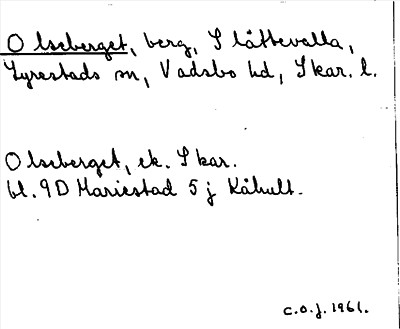 Olseberget, berg, Slättevalla,
Lyrestads sn, Vadsbo hd, Skar. l.
Olseberget, ek. Skar.
bl. 9D Mariestad 5 j Kåhult.
C.O.J. 1961.